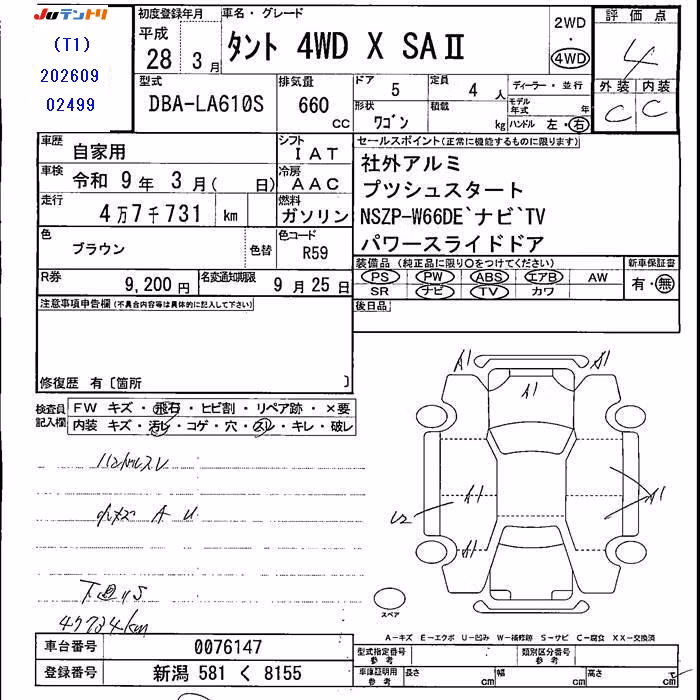 Juテントリ
(T1)
202609
02499
初度登録年月
平成
28 3月
車名・グレード
タント 4WD X SAⅡ
2WD
・
4WD
評価点
4
外装 内装
C C
型式
DBA-LA610S
排気量
660 cc
ドア
5
定員
4 人
形状
ワゴン
積載
kg
ディーラー・並行
モデル年式 年
ハンドル 左・右
車歴
自家用
シフト
IAT
車検
令和 9年 3月( 日)
冷房
AAC
走行
4万7千731 km
燃料
ガソリン
色
ブラウン
色替
色コード
R59
R券
9,200円
名変通知期限
9月25日
セールスポイント(正常に機能するものに限ります)
社外アルミ
プツシュスタート
NSZP-W66DE`ナビ`TV
パワースライドドア
装備品(純正品に限り○をつけてください)
PS PW ABS エアB AW
SR ナビ TV カワ
新車保証書
有・無
後日品
注意事項申告欄(不具合内容等は具体的に記入して下さい)
修復歴 有〔箇所 〕
検査員記入欄
FW キズ・飛石・ヒビ割・リペア跡・×要
内装 キズ・汚レ・コゲ・穴・スレ・キレ・破レ
ハンドルスレ
小キズ A U
下回りS
47734km
A1
A1
A1
A1
A1
A1
U2
スペア
A−キズ E−エクボ U−凹み W−補修跡 S−サビ C−腐食 XX−交換済
車台番号
0076147
登録番号
新潟 581 く 8155
型式指定番号
参考
類別区分番号
参考
車庫証明用
参考
長さ cm
幅 cm
高さ cm